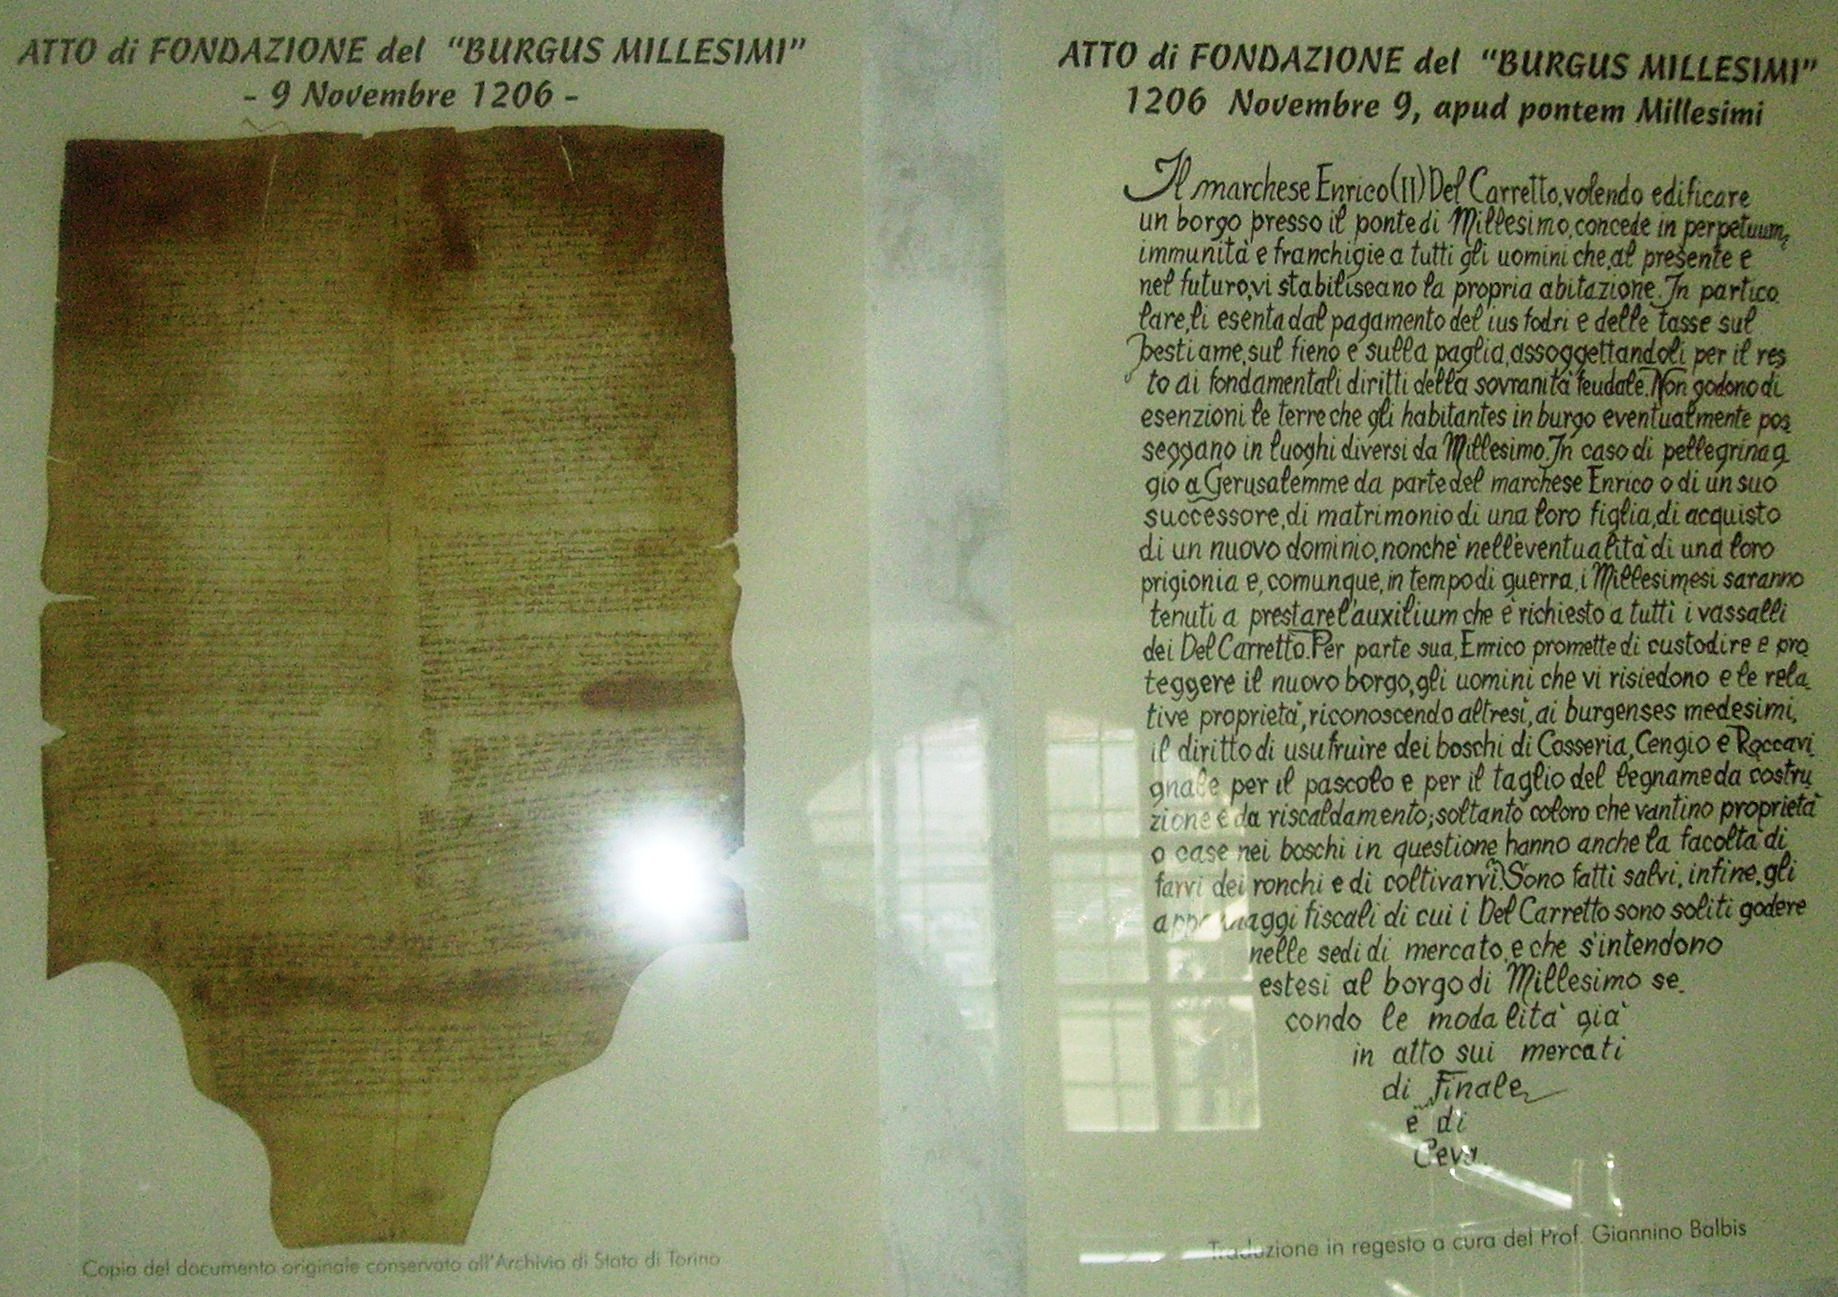 ATTO di FONDAZIONE del "BURGUS MILLESIMI"
- 9 Novembre 1206 -
Copia del documento originale conservato all'Archivio di Stato di Torino
ATTO di FONDAZIONE del "BURGUS MILLESIMI"
1206 Novembre 9, apud pontem Millesimi
Il marchese Enrico (II) Del Carretto, volendo edificare
un borgo presso il ponte di Millesimo, concede in perpetuum,
immunità e franchigie a tutti gli uomini che, al presente e
nel futuro, vi stabiliscano la propria abitazione. In partico
lare, li esenta dal pagamento del ius fodri e delle tasse sul
bestiame, sul fieno e sulla paglia, assoggettandoli per il res
to ai fondamentali diritti della sovranità feudale. Non godono di
esenzioni le terre che gli habitantes in burgo eventualmente pos
seggano in luoghi diversi da Millesimo. In caso di pellegrinag
gio a Gerusalemme da parte del marchese Enrico o di un suo
successore, di matrimonio di una loro figlia, di acquisto
di un nuovo dominio, nonchè nell'eventualità di una loro
prigionia e, comunque, in tempo di guerra, i Millesimesi saranno
tenuti a prestare l'auxilium che è richiesto a tutti i vassalli
dei Del Carretto. Per parte sua, Enrico promette di custodire e pro
teggere il nuovo borgo, gli uomini che vi risiedono e le rela
tive proprietà, riconoscendo altresì, ai burgenses medesimi,
il diritto di usufruire dei boschi di Cosseria, Cengio e Roccavi
gnale per il pascolo e per il taglio del legname da costru
zione e da riscaldamento; soltanto coloro che vantino proprietà
o case nei boschi in questione hanno anche la facoltà di
farvi dei ronchi e di coltivarvi. Sono fatti salvi, infine, gli
fiscali di cui i Del Carretto sono soliti godere
nelle sedi di mercato, e che s'intendono
estesi al borgo di Millesimo se
condo le modalità già
in atto sui mercati
di Finale
e di
Ceva.
Traduzione in regesto a cura del Prof. Giannino Balbis